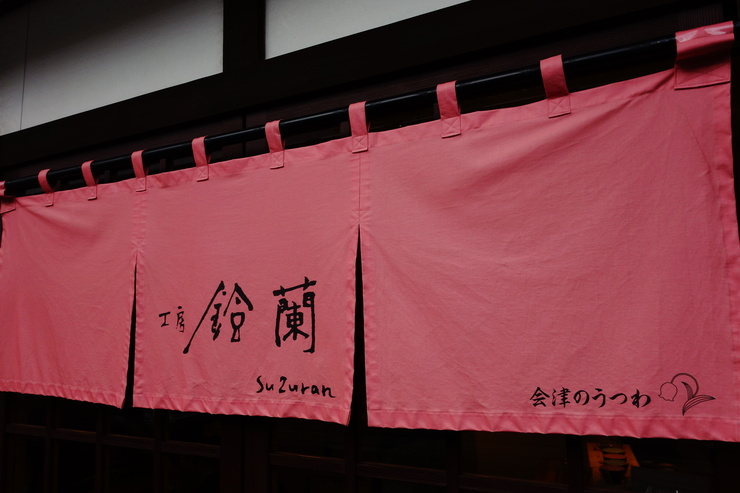 工房 鈴蘭
Suzuran
会津のうつわ